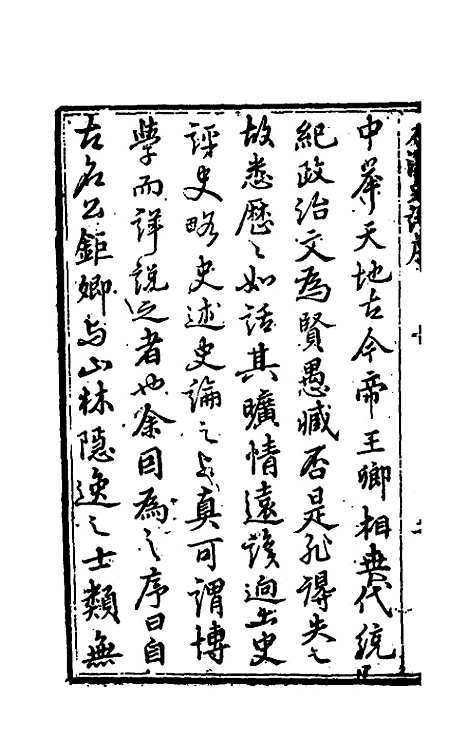 中葬天地古今帝王卿相世代統
紀政治文為賢愚臧否是非得失之
故悉歷々如話其曠情遠韻迥出史
評史略史述史論之上真可謂博
學而詳說之者也余因為之序曰自
古名公鉅卿与山林隱逸之士類無